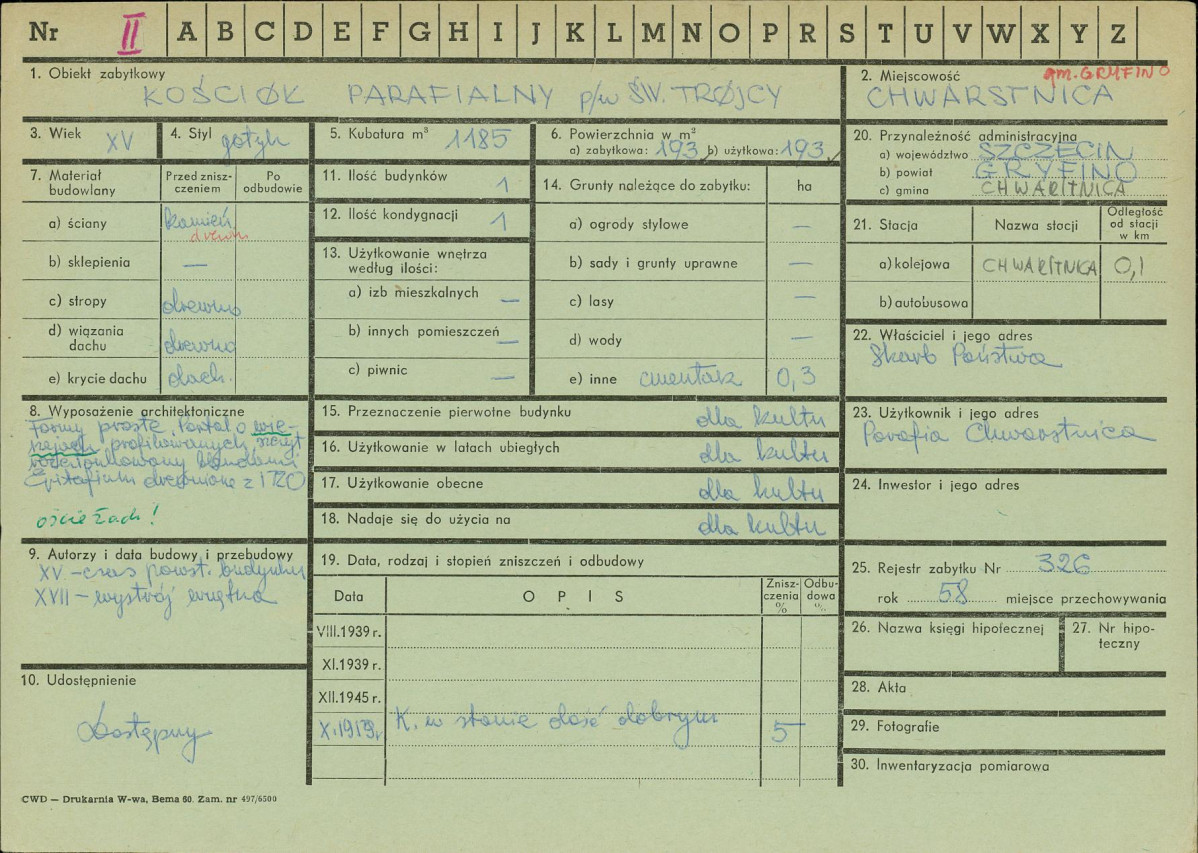 Nr II A B C D E F G H I J K L M N O P R S T U V W X Y Z
1. Obiekt zabytkowy
KOŚCIØŁ PARAFIALNY p/w ŚW. TRØJCY
2. Miejscowość gm. GRYFINO
CHWARSTNICA
3. Wiek XV
4. Styl gotyk
5. Kubatura m³ 1185
6. Powierzchnia w m²
a) zabytkowa: 193 b) użytkowa: 193
20. Przynależność administracyjna
a) województwo SZCZECIN
b) powiat GRYFINO
c) gmina CHWARSTNICA
7. Materiał budowlany
Przed zniszczeniem
Po odbudowie
a) ściany kamień
drewno
b) sklepienia —
c) stropy drewno
d) wiązania dachu drewno
e) krycie dachu dach.
11. Ilość budynków 1
12. Ilość kondygnacji 1
13. Użytkowanie wnętrza według ilości:
a) izb mieszkalnych —
b) innych pomieszczeń —
c) piwnic —
14. Grunty należące do zabytku: ha
a) ogrody stylowe —
b) sady i grunty uprawne —
c) lasy —
d) wody —
e) inne cmentarz 0,3
21. Stacja Nazwa stacji Odległość od stacji w km
a) kolejowa CHWARSTNICA 0,1
b) autobusowa
22. Właściciel i jego adres
Skarb Państwa
8. Wyposażenie architektoniczne
Formy proste. Portal o
profilowanych szczyt
rozczłonkowany blendami
Epitafium drewniane z 1720
ościeżach!
15. Przeznaczenie pierwotne budynku dla kultu
16. Użytkowanie w latach ubiegłych dla kultu
17. Użytkowanie obecne dla kultu
18. Nadaje się do użycia na dla kultu
23. Użytkownik i jego adres
Parafia Chwarstnica
24. Inwestor i jego adres
9. Autorzy i data budowy i przebudowy
XV - czas powst. budynku
XVII - wystrój wnętrza
19. Data, rodzaj i stopień zniszczeń i odbudowy
Data OPIS Zniszczenia % Odbudowa %
VIII.1939 r.
XI.1939 r.
XII.1945 r.
K. w stanie dość dobrym 5
25. Rejestr zabytku Nr 326
rok 58 miejsce przechowywania
26. Nazwa księgi hipotecznej
27. Nr hipoteczny
10. Udostępnienie
Dostępny
28. Akta
29. Fotografie
30. Inwentaryzacja pomiarowa
CWD — Drukarnia W-wa, Bema 60. Zam. nr 497/6500